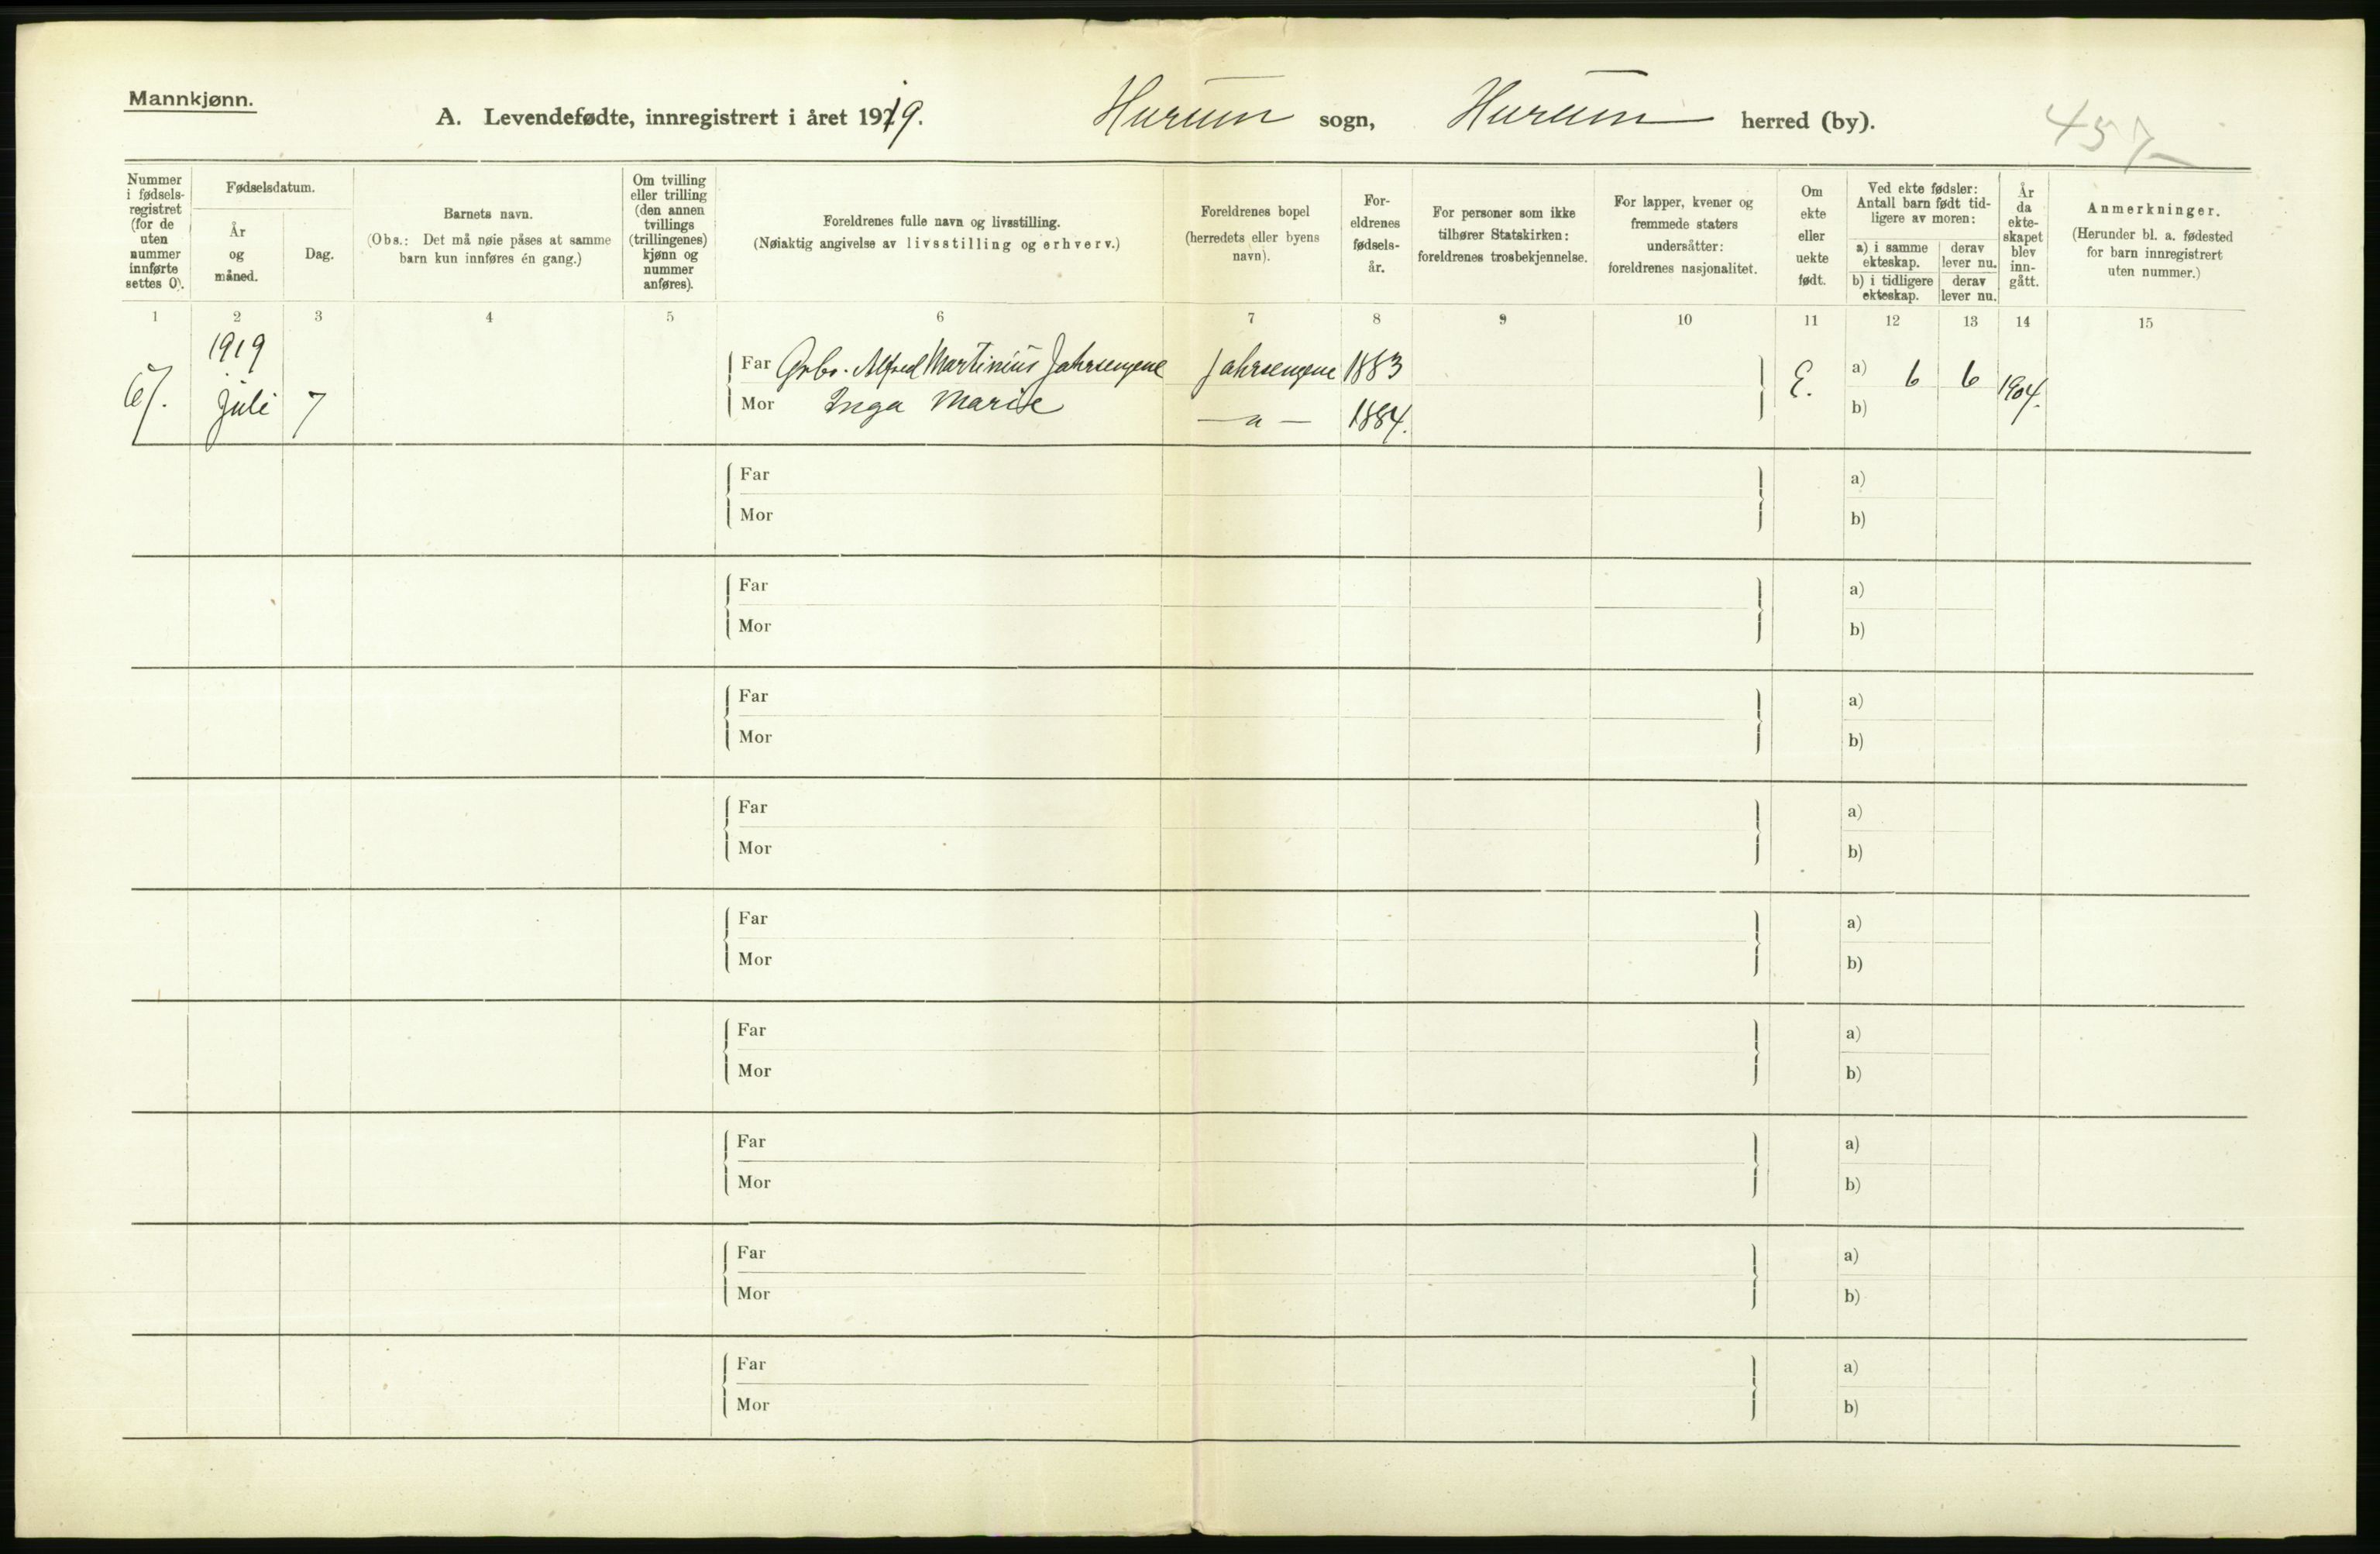 Mannkjønn.
A. Levendefødte, innregistrert i året 1919. Hurum sogn, Hurum herred (by). 457
Nummer i fødselsregistret (for de uten nummer innførte settes 0).
Fødselsdatum.
År og måned.
Dag.
Barnets navn.
(Obs.: Det må nøie påses at samme barn kun innføres én gang.)
Om tvilling eller trilling (den annen tvillings (trillingenes) kjønn og nummer anføres).
Foreldrenes fulle navn og livsstilling.
(Nøiaktig angivelse av livsstilling og erhverv.)
Foreldrenes bopel (herredets eller byens navn).
Foreldrenes fødselsår.
For personer som ikke tilhører Statskirken: foreldrenes trosbekjennelse.
For lapper, kvener og fremmede staters undersåtter: foreldrenes nasjonalitet.
Om ekte eller uekte født.
Ved ekte fødsler: Antall barn født tidligere av moren:
a) i samme ekteskap. derav lever nu.
b) i tidligere ekteskap. derav lever nu.
År da ekteskapet blev inngått.
Anmerkninger.
(Herunder bl. a. fødested for barn innregistrert uten nummer.)
1 2 3 4 5 6 7 8 9 10 11 12 13 14 15
1919
Far Alfred Martinius Jahrsengene Jahrsengene 1883 E. a) 6 6 1904.
Juli 7 Mor Inga Marie — a — 1884. b)
Far a)
Mor b)
Far a)
Mor b)
Far a)
Mor b)
Far a)
Mor b)
Far a)
Mor b)
Far a)
Mor b)
Far a)
Mor b)
Far a)
Mor b)
Far a)
Mor b)